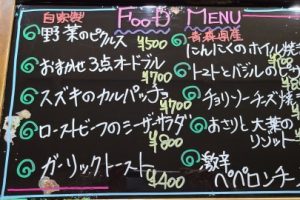 FOOD MENU
自家製
野菜のピクルス ¥500
おまかせ3点オードブル ¥700
スズキのカルパッチョ ¥700
ローストビーフのシーザーサラダ ¥800
ガーリックトースト ¥400
青森県産
にんにくのホイル焼
トマトとバジルの
チョリソーチーズ焼
あさりと大葉の
リゾット
激辛
ペペロンチー